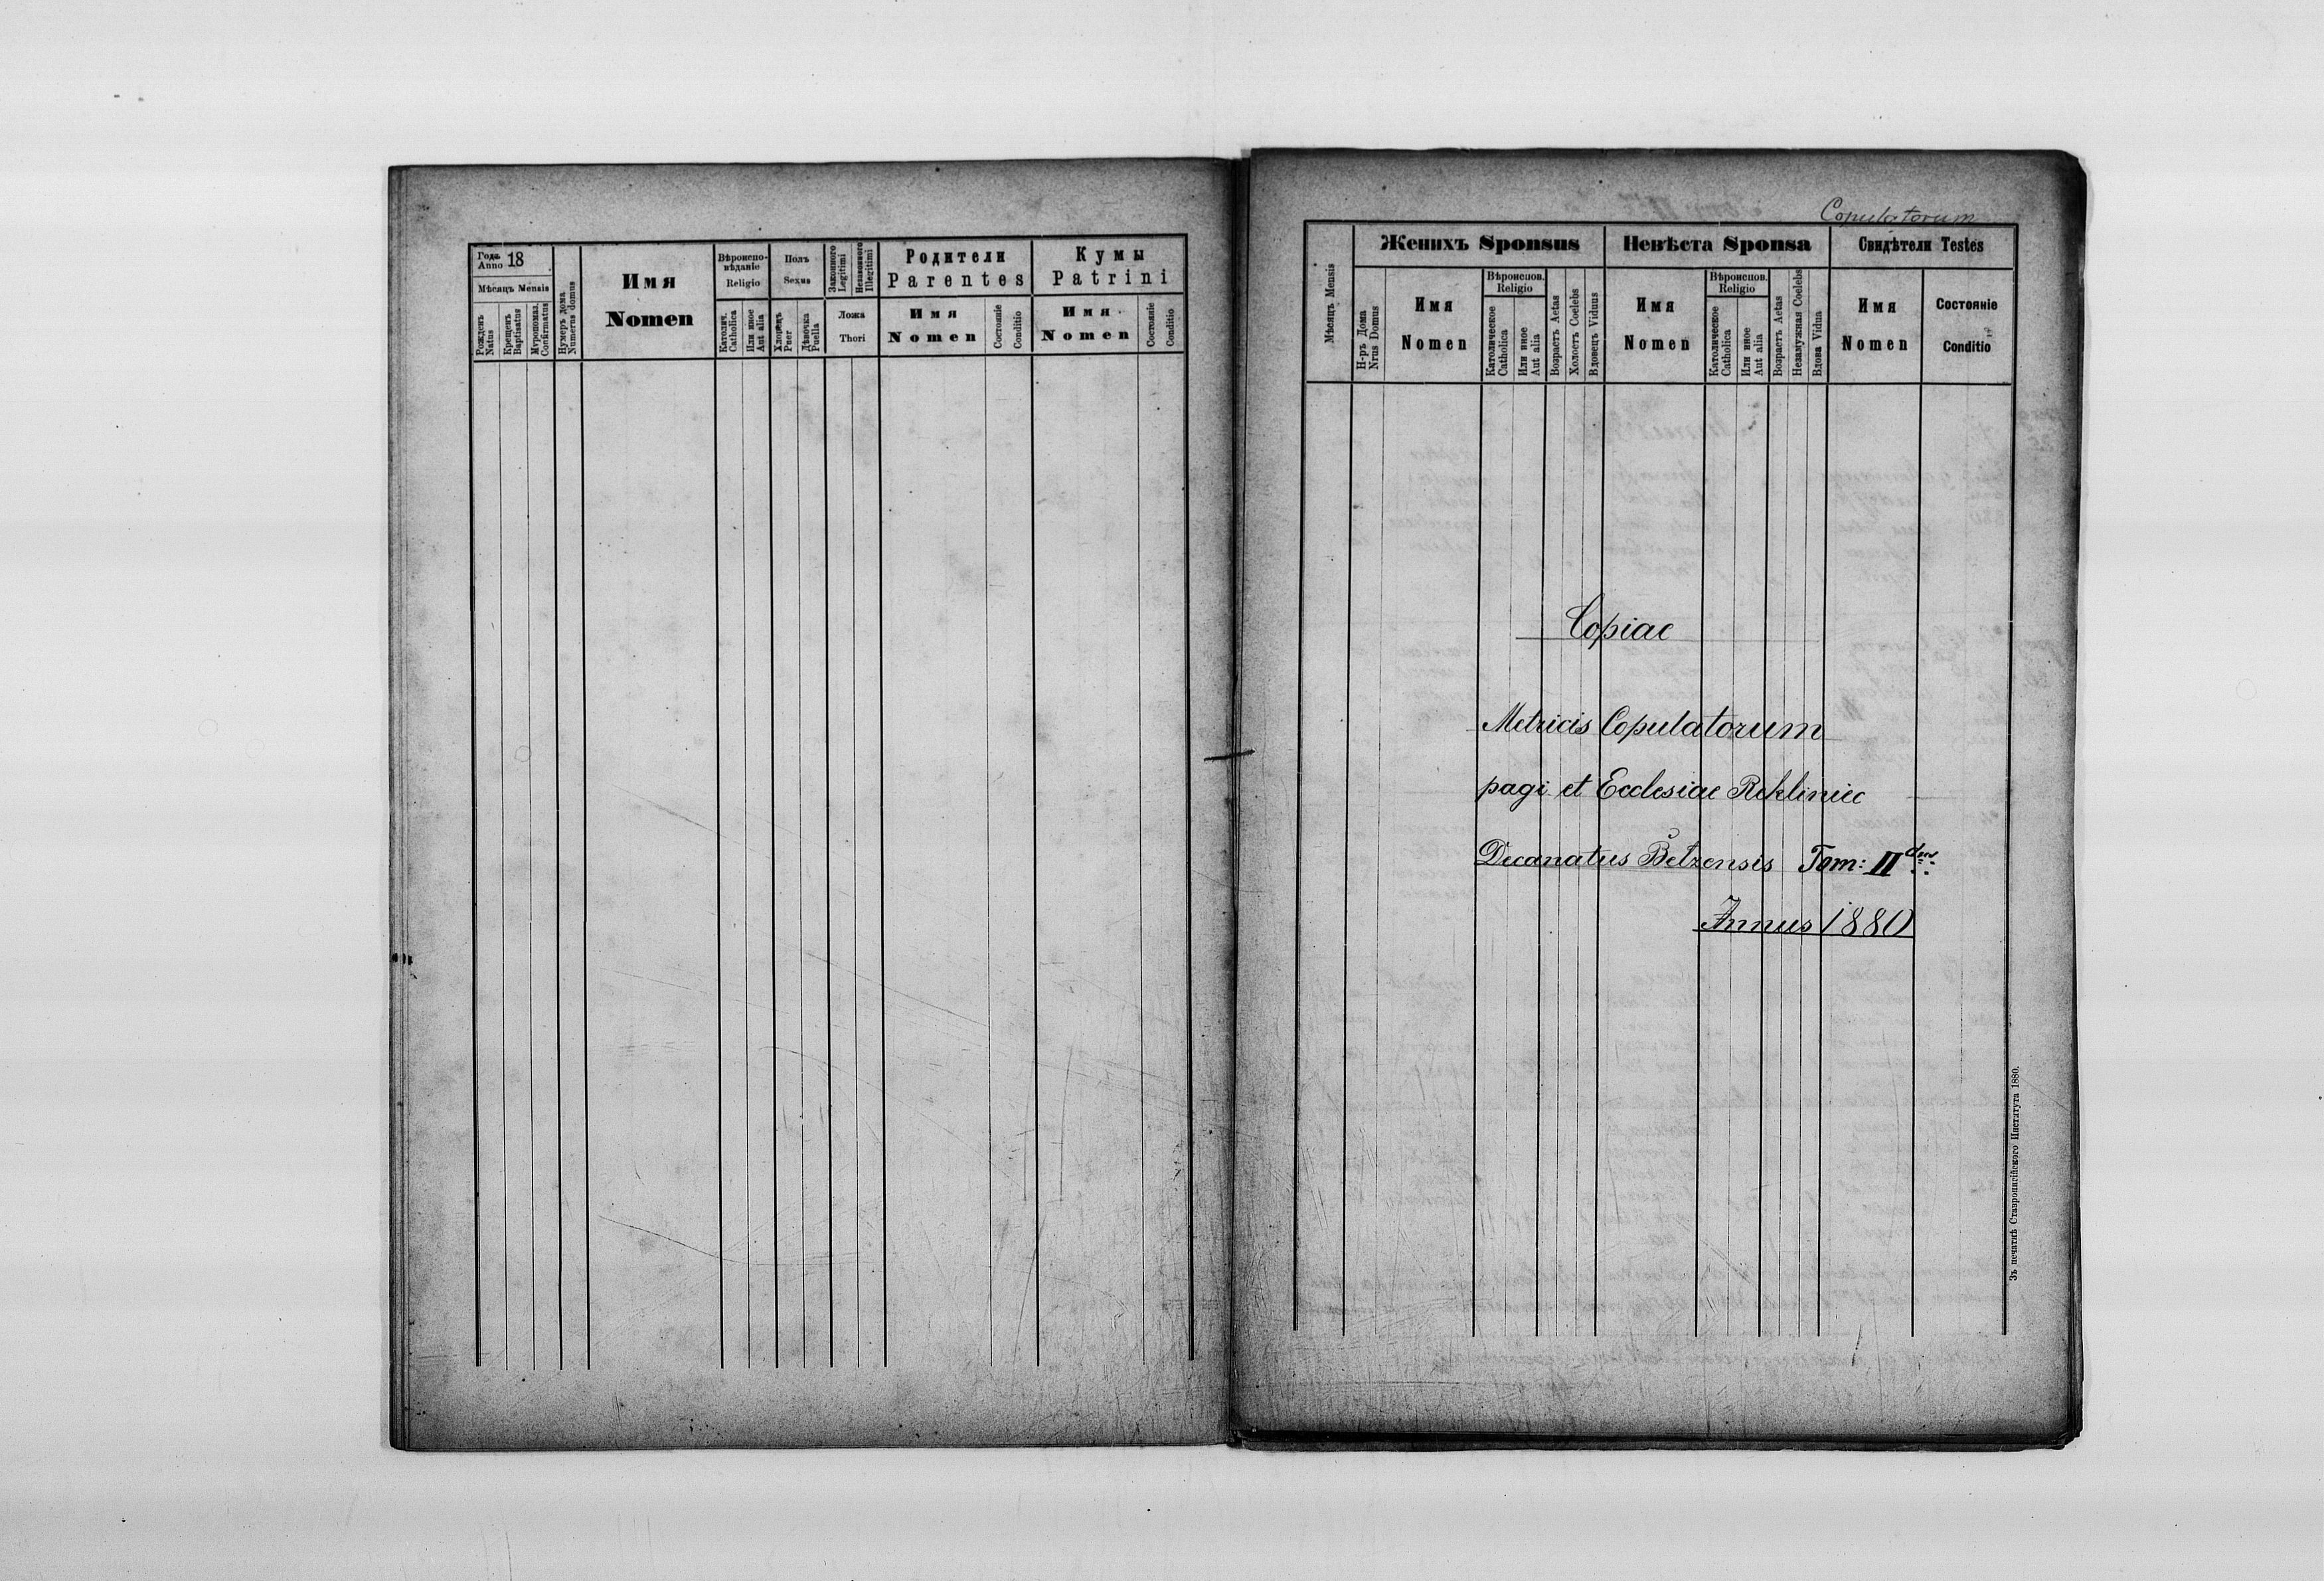 Годъ Anno 18
Мѣсяцъ Mensis
Рожденъ Natus
Крещенъ Baptisatus
Мѵропомаз. Confirmatus
Нумеръ дома Numerus domus
Имя
Nomen
Вѣроиспо-
вѣданіе
Religio
Католич. Catholica
Или иное Aut alia
Полъ
Sexus
Хлопецъ Puer
Дѣвочка Puella
Законного Legitimi
Незаконного Illegitimi
Ложа
Thori
Родители
Parentes
Имя
Nomen
Состояніе
Conditio
Кумы
Patrini
Имя
Nomen
Состояніе
Conditio
Copulatorum
Мѣсяцъ Mensis
Женихъ Sponsus
Н-ръ Дома Nrus Domus
Имя
Nomen
Вѣроиспов.
Religio
Католическое Catholica
Или иное Aut alia
Возрастъ Aetas
Холостъ Coelebs
Вдовецъ Viduus
Невѣста Sponsa
Имя
Nomen
Вѣроиспов.
Religio
Католическое Catholica
Или иное Aut alia
Возрастъ Aetas
Незамужная Coelebs
Вдова Vidua
Свидѣтели Testes
Имя
Nomen
Состояніе
Conditio
Copiae
Metricis Copulatorum
pagi et Ecclesiae Rekliniec
Decanatus Belzensis Tom: II
Annus 1880
Зъ печатнѣ Ставропигійского Института 1880.